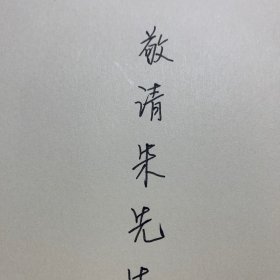 敬请朱先